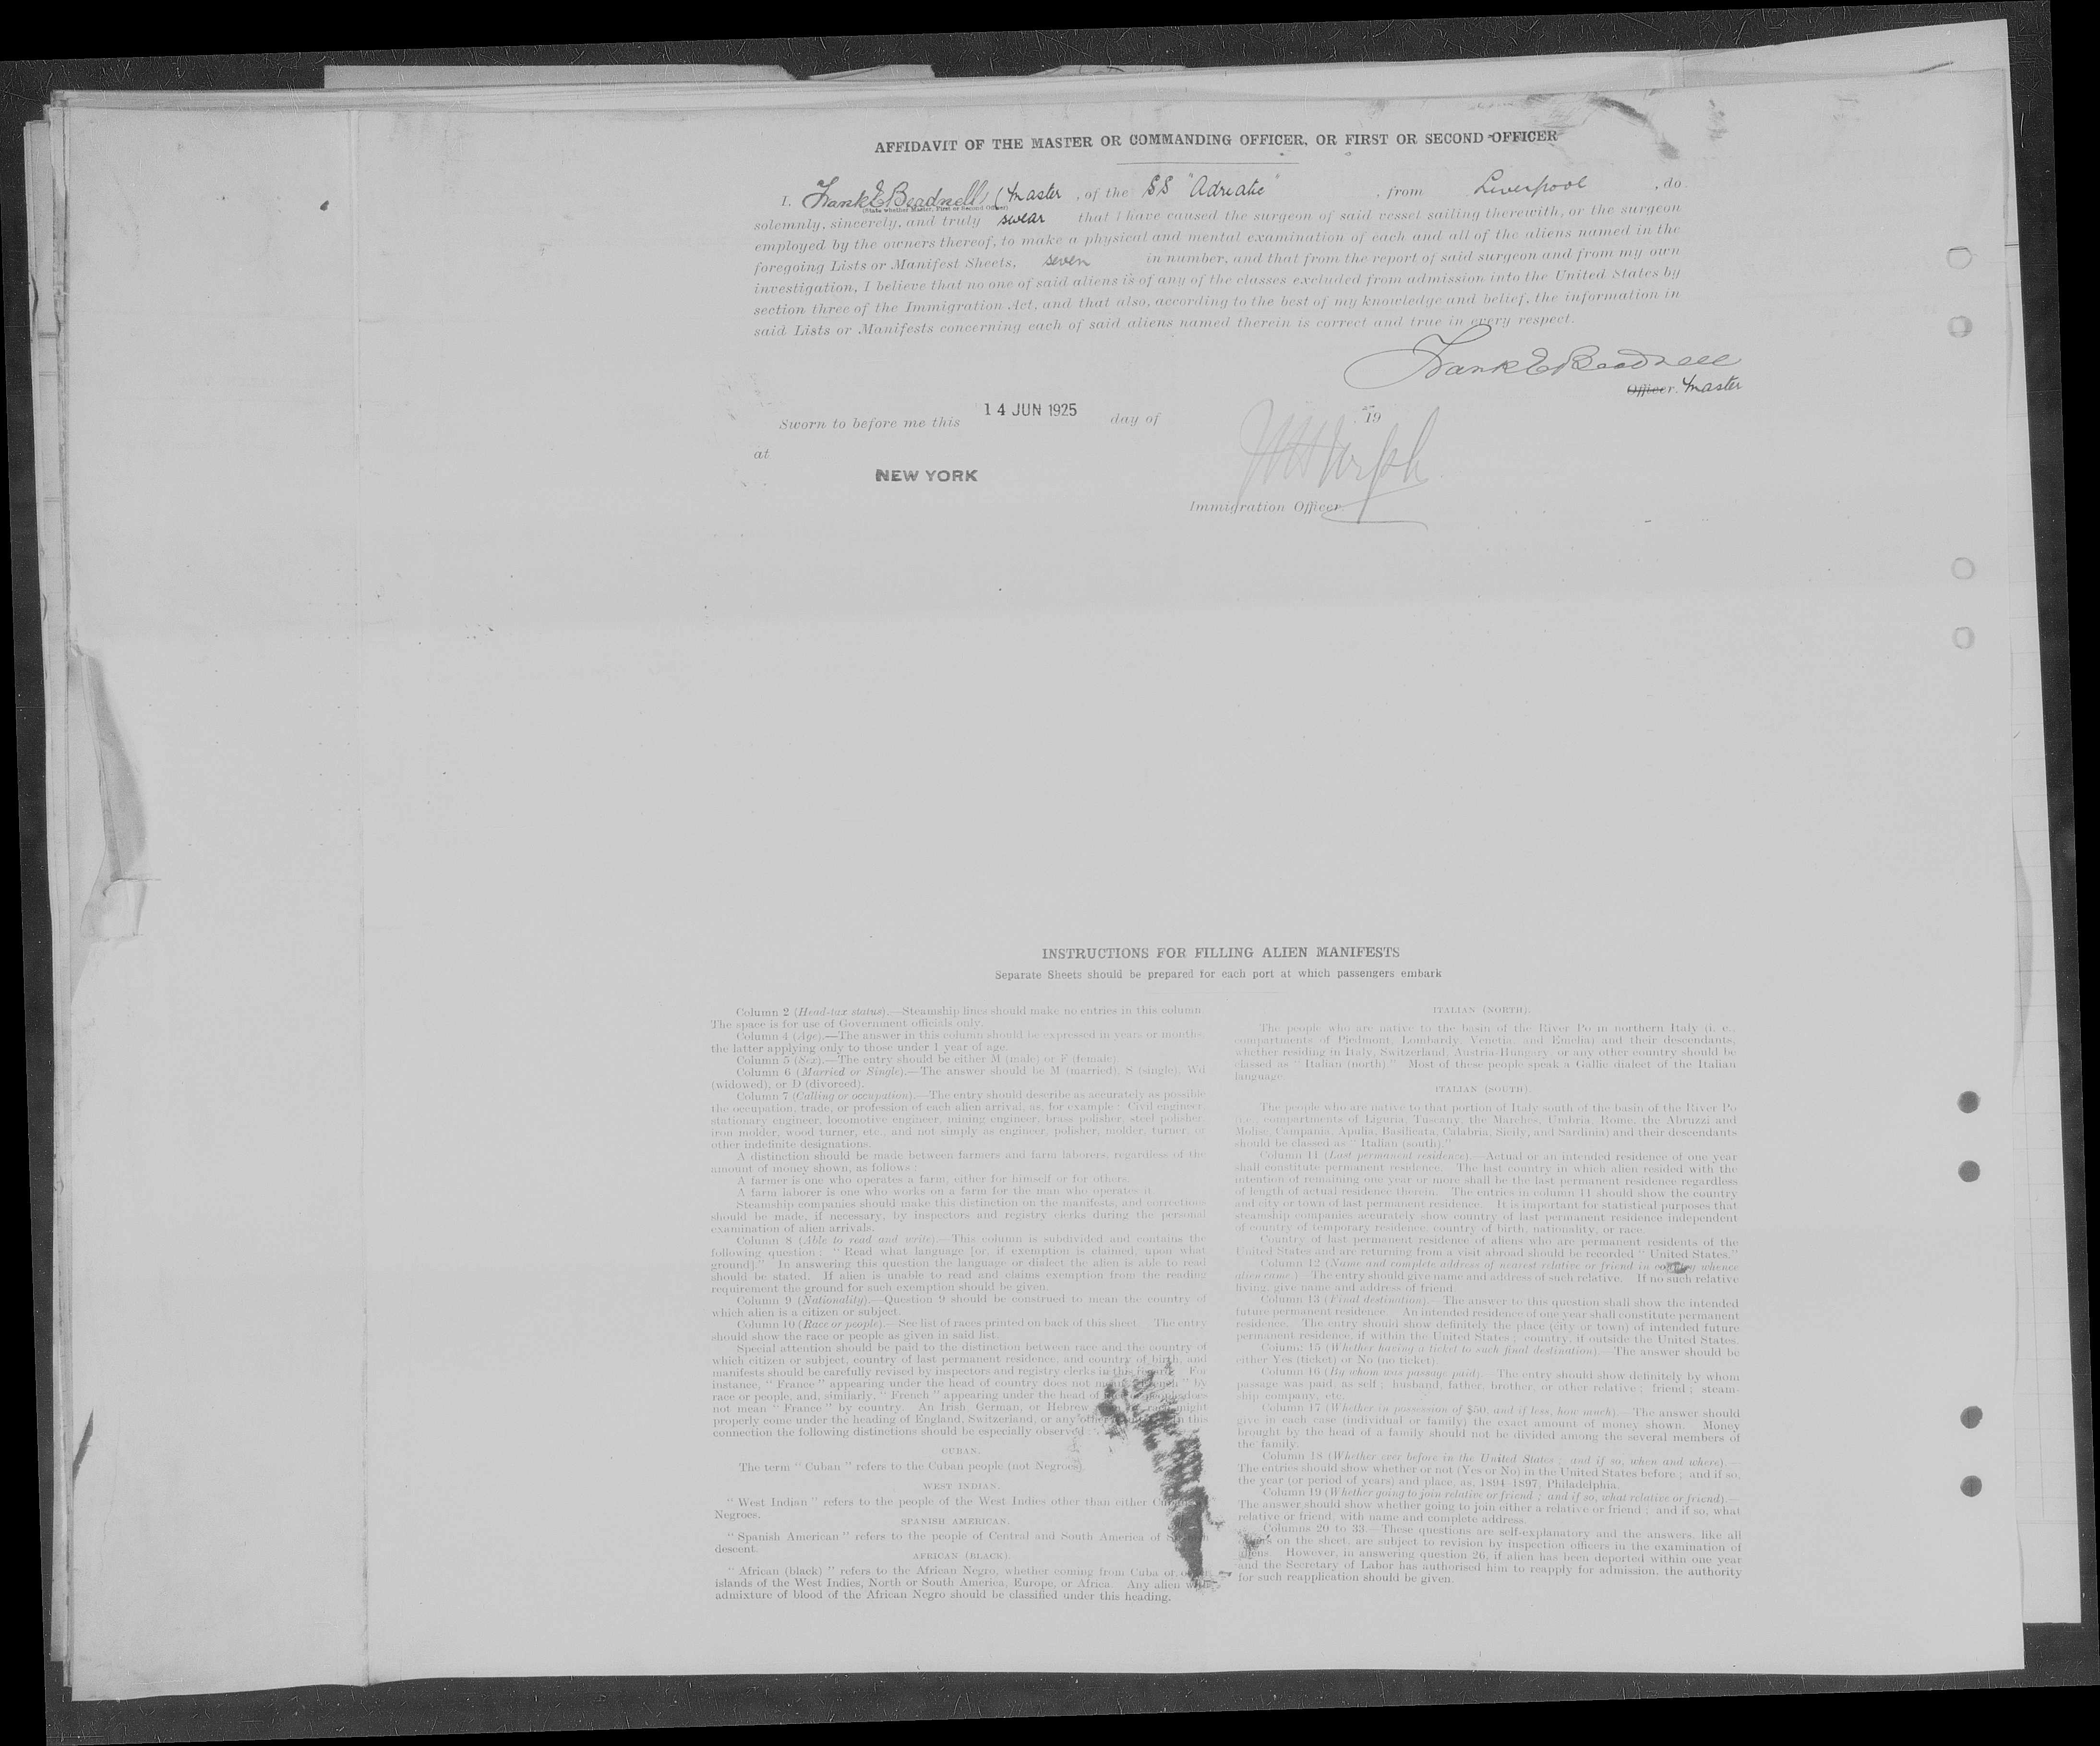 AFFIDAVIT OF THE MASTER OR COMMANDING OFFICER, OR FIRST OR SECOND OFFICER
I, Frank E Beadnell (Master , of the SS "Adriatic" , from Liverpool , do
(State whether Master, First or Second Officer)
solemnly, sincerely, and truly swear that I have caused the surgeon of said vessel sailing therewith, or the surgeon
employed by the owners thereof, to make a physical and mental examination of each and all of the aliens named in the
foregoing Lists or Manifest Sheets, seven in number, and that from the report of said surgeon and from my own
investigation, I believe that no one of said aliens is of any of the classes excluded from admission into the United States by
section three of the Immigration Act, and that also, according to the best of my knowledge and belief, the information in
said Lists or Manifests concerning each of said aliens named therein is correct and true in every respect.
Frank E Beadnell
Officer. Master
Sworn to before me this 14 JUN 1925 day of , 19
at
NEW YORK
Immigration Officer.
INSTRUCTIONS FOR FILLING ALIEN MANIFESTS
Separate Sheets should be prepared for each port at which passengers embark
Column 2 (Head-tax status).—Steamship lines should make no entries in this column.
The space is for use of Government officials only.
Column 4 (Age).—The answer in this column should be expressed in years or months,
the latter applying only to those under 1 year of age.
Column 5 (Sex).—The entry should be either M (male) or F (female).
Column 6 (Married or Single).—The answer should be M (married), S (single), Wd
(widowed), or D (divorced).
Column 7 (Calling or occupation).—The entry should describe as accurately as possible
the occupation, trade, or profession of each alien arrival, as, for example : Civil engineer,
stationary engineer, locomotive engineer, mining engineer, brass polisher, steel polisher,
iron molder, wood turner, etc., and not simply as engineer, polisher, molder, turner, or
other indefinite designations.
A distinction should be made between farmers and farm laborers, regardless of the
amount of money shown, as follows :
A farmer is one who operates a farm, either for himself or for others.
A farm laborer is one who works on a farm for the man who operates it.
Steamship companies should make this distinction on the manifests, and corrections
should be made, if necessary, by inspectors and registry clerks during the personal
examination of alien arrivals.
Column 8 (Able to read and write).—This column is subdivided and contains the
following question : " Read what language [or, if exemption is claimed, upon what
ground]." In answering this question the language or dialect the alien is able to read
should be stated. If alien is unable to read and claims exemption from the reading
requirement the ground for such exemption should be given.
Column 9 (Nationality).—Question 9 should be construed to mean the country of
which alien is a citizen or subject.
Column 10 (Race or people).—See list of races printed on back of this sheet. The entry
should show the race or people as given in said list.
Special attention should be paid to the distinction between race and the country of
which citizen or subject, country of last permanent residence, and country of birth, and
manifests should be carefully revised by inspectors and registry clerks in this For
instance, " France " appearing under the head of country does not " by
race or people, and, similarly, " French " appearing under the head of does
not mean " France " by country. An Irish, German, or Hebrew might
properly come under the heading of England, Switzerland, or any other this
connection the following distinctions should be especially observed :
CUBAN.
The term " Cuban " refers to the Cuban people (not Negroes).
WEST INDIAN.
" West Indian " refers to the people of the West Indies other than either
Negroes.
SPANISH AMERICAN.
" Spanish American " refers to the people of Central and South America of
descent.
AFRICAN (BLACK).
" African (black) " refers to the African Negro, whether coming from Cuba or
islands of the West Indies, North or South America, Europe, or Africa. Any alien
admixture of blood of the African Negro should be classified under this heading.
ITALIAN (NORTH).
The people who are native to the basin of the River Po in northern Italy (i. e.,
compartments of Piedmont, Lombardy, Venetia, and Emelia) and their descendants,
whether residing in Italy, Switzerland, Austria-Hungary, or any other country should be
classed as " Italian (north)." Most of these people speak a Gallic dialect of the Italian
language.
ITALIAN (SOUTH).
The people who are native to that portion of Italy south of the basin of the River Po
(i.e., compartments of Liguria, Tuscany, the Marches, Umbria, Rome, the Abruzzi and
Molise, Campania, Apulia, Basilicata, Calabria, Sicily, and Sardinia) and their descendants
should be classed as " Italian (south)."
Column 11 (Last permanent residence).—Actual or an intended residence of one year
shall constitute permanent residence. The last country in which alien resided with the
intention of remaining one year or more shall be the last permanent residence regardless
of length of actual residence therein. The entries in column 11 should show the country
and city or town of last permanent residence. It is important for statistical purposes that
steamship companies accurately show country of last permanent residence independent
of country of temporary residence, country of birth, nationality, or race.
Country of last permanent residence of aliens who are permanent residents of the
United States and are returning from a visit abroad should be recorded " United States."
Column 12 (Name and complete address of nearest relative or friend in country whence
alien came.)—The entry should give name and address of such relative. If no such relative
living, give name and address of friend.
Column 13 (Final destination).—The answer to this question shall show the intended
future permanent residence. An intended residence of one year shall constitute permanent
residence. The entry should show definitely the place (city or town) of intended future
permanent residence, if within the United States ; country, if outside the United States.
Column 15 (Whether having a ticket to such final destination).—The answer should be
either Yes (ticket) or No (no ticket).
Column 16 (By whom was passage paid).—The entry should show definitely by whom
passage was paid, as self ; husband, father, brother, or other relative ; friend ; steam-
ship company, etc.
Column 17 (Whether in possession of $50, and if less, how much).—The answer should
give in each case (individual or family) the exact amount of money shown. Money
brought by the head of a family should not be divided among the several members of
the family.
Column 18 (Whether ever before in the United States ; and if so, when and where).—
The entries should show whether or not (Yes or No) in the United States before ; and if so,
the year (or period of years) and place, as, 1894–1897, Philadelphia.
Column 19 (Whether going to join relative or friend ; and if so, what relative or friend).—
The answer should show whether going to join either a relative or friend ; and if so, what
relative or friend, with name and complete address.
Columns 20 to 33.—These questions are self-explanatory and the answers, like all
on the sheet, are subject to revision by inspection officers in the examination of
aliens. However, in answering question 26, if alien has been deported within one year
and the Secretary of Labor has authorised him to reapply for admission, the authority
for such reapplication should be given.